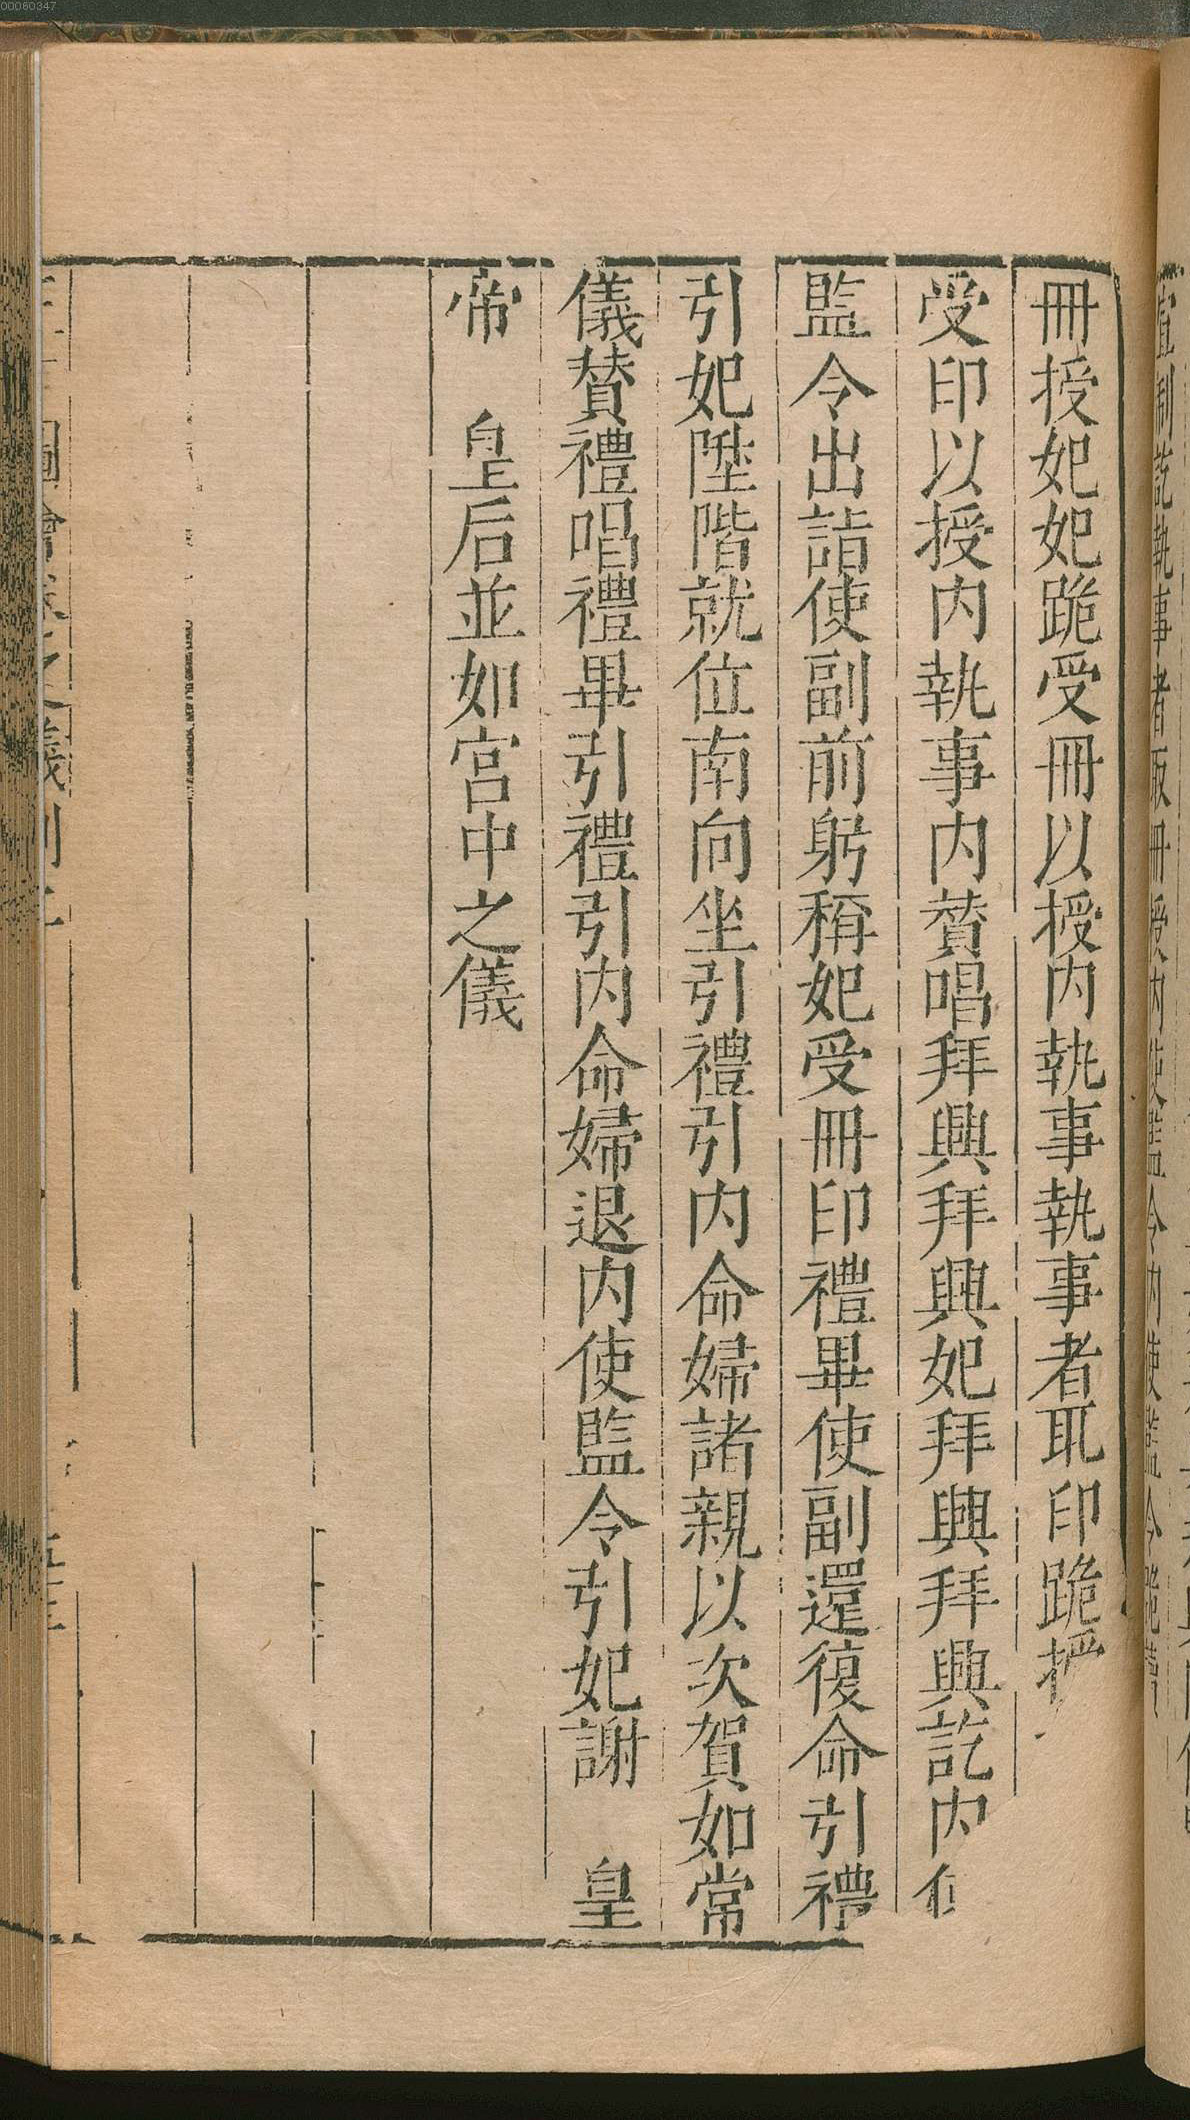 00060347
宣制訖執事者取冊授内使監令内使監令跪
冊授妃妃跪受冊以授内執事執事者取印跪授
受印以授内執事内贊唱拜興拜興妃拜興拜興訖内使
監令出詣使副前躬稱妃受冊印禮畢使副還復命引禮
引妃陞階就位南向坐引禮引内命婦諸親以次賀如常
儀贊禮唱禮畢引禮引内命婦退内使監令引妃謝　皇
帝　皇后並如宮中之儀
圖會